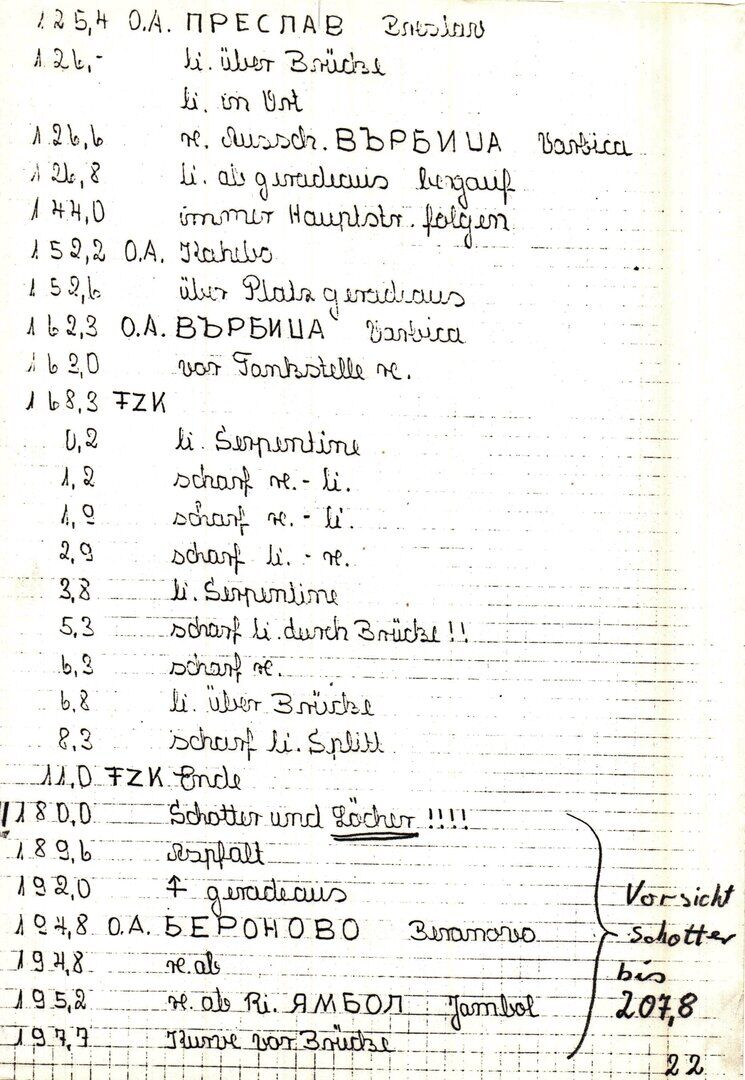 125,4 O.A. ПРЕСЛАВ Breslav
126,- li. über Brücke
li. in Ort
126,6 re. Aussch. ВЪРБИЦА Varbica
126,8 li. ab geradeaus bergauf
144,0 immer Hauptstr. folgen
152,2 O.A. Kahibo
152,6 über Platz geradeaus
162,3 O.A. ВЪРБИЦА Varbica
163,0 vor Tankstelle re.
168,3 FZK
0,2 li. Serpentine
1,2 scharf re. - li.
1,9 scharf re. - li.
2,9 scharf li. - re.
3,8 li. Serpentine
5,3 scharf li. durch Brücke!!
6,3 scharf re.
6,8 li. über Brücke
8,3 scharf li. Splitt
11,0 FZK Ende
180,0 Schotter und Löcher !!!!
189,6 Asphalt
192,0 ↑ geradeaus
194,8 O.A. БЕРОНОВО Beranovo
194,8 re. ab
195,2 re. ab Ri. ЯМБОЛ Jambol
197,7 Kurve vor Brücke
Vorsicht
Schotter
bis
207,8
22